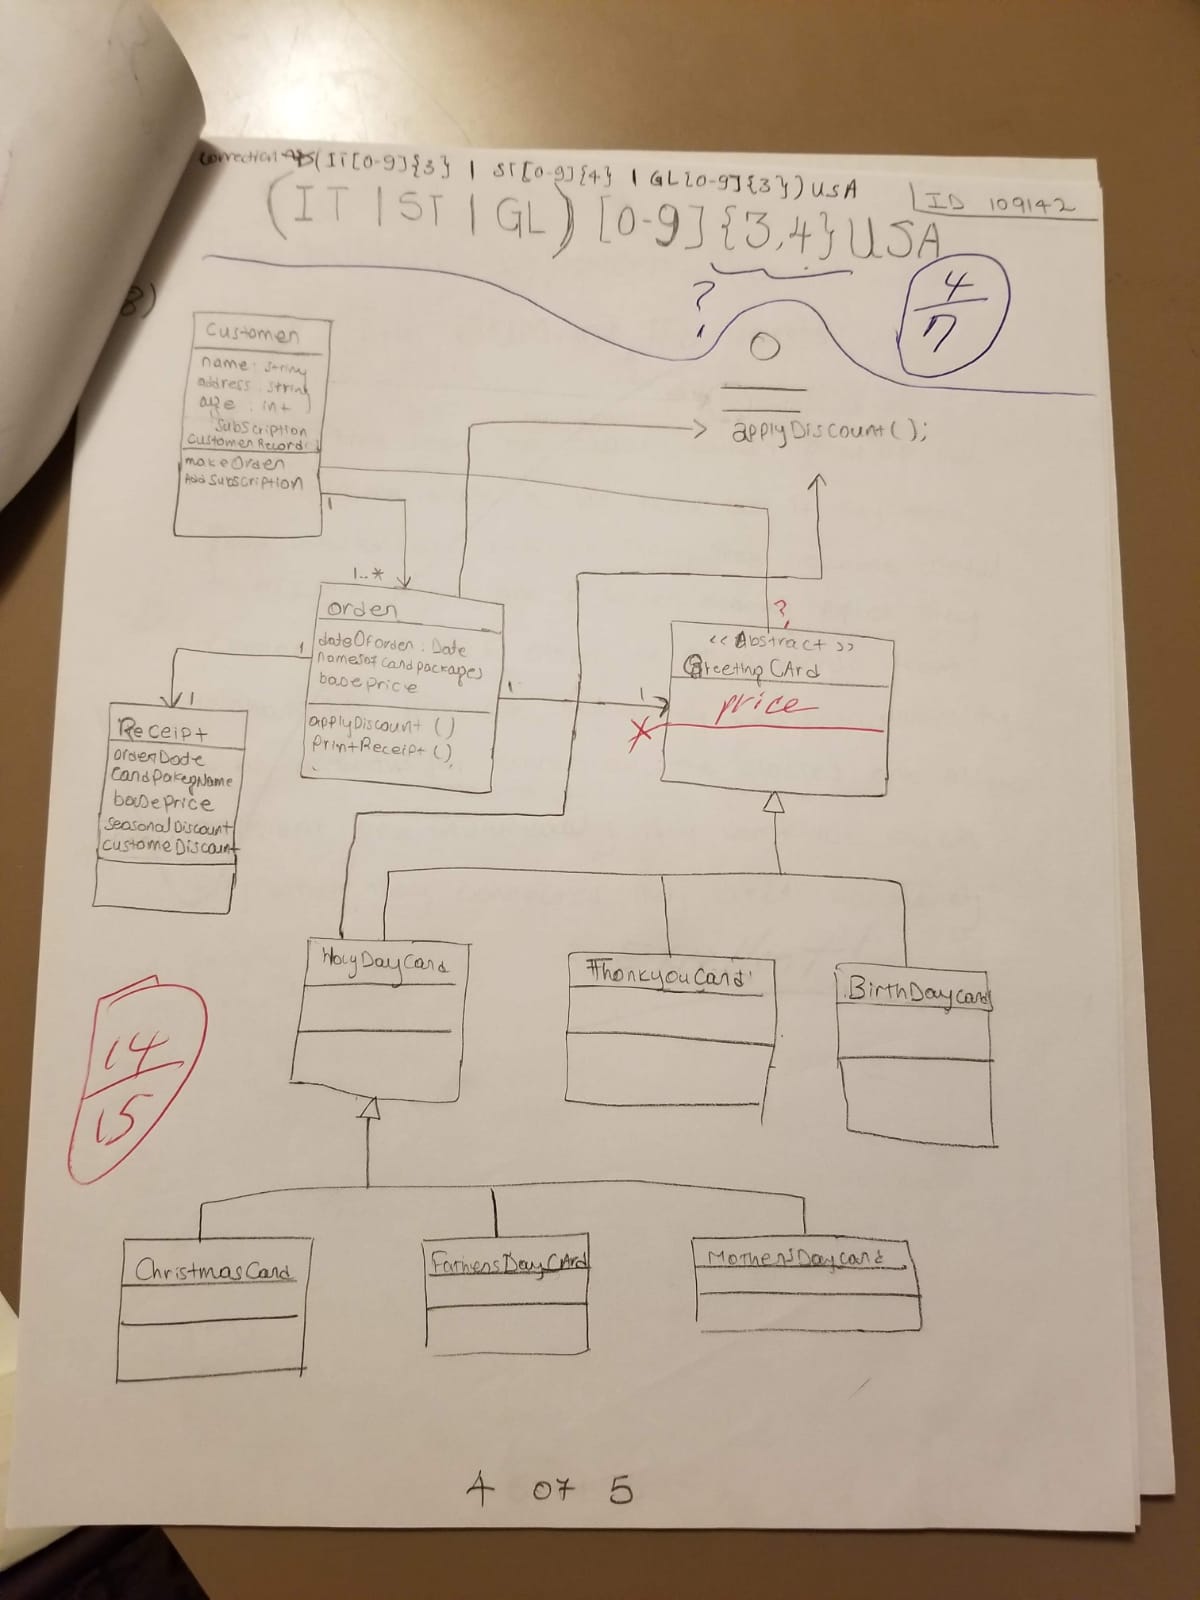 correction (IT[0-9]{3} | ST[0-9]{4} | GL[0-9]{3}) USA
ID 109142
(IT | ST | GL) [0-9] {3,4} USA
?
4
7
8)
Customer
name: string
address: string
age: int
Subscription
CustomerRecord
makeOrder
Add Subscription
applyDiscount();
1
1..*
order
dateOforder: Date
namesofcardpackages
base price
applyDiscount ()
PrintReceipt ()
1
1
1
1
?
<<Abstract>>
Greeting CArd
price
X
Receipt
orderDate
CardPakegName
basePrice
SeasonalDiscount
customeDiscount
HolyDayCard
ThankyouCard
BirthDaycard
14
15
ChristmasCard
FathersDayCArd
MothersDaycard
4 of 5